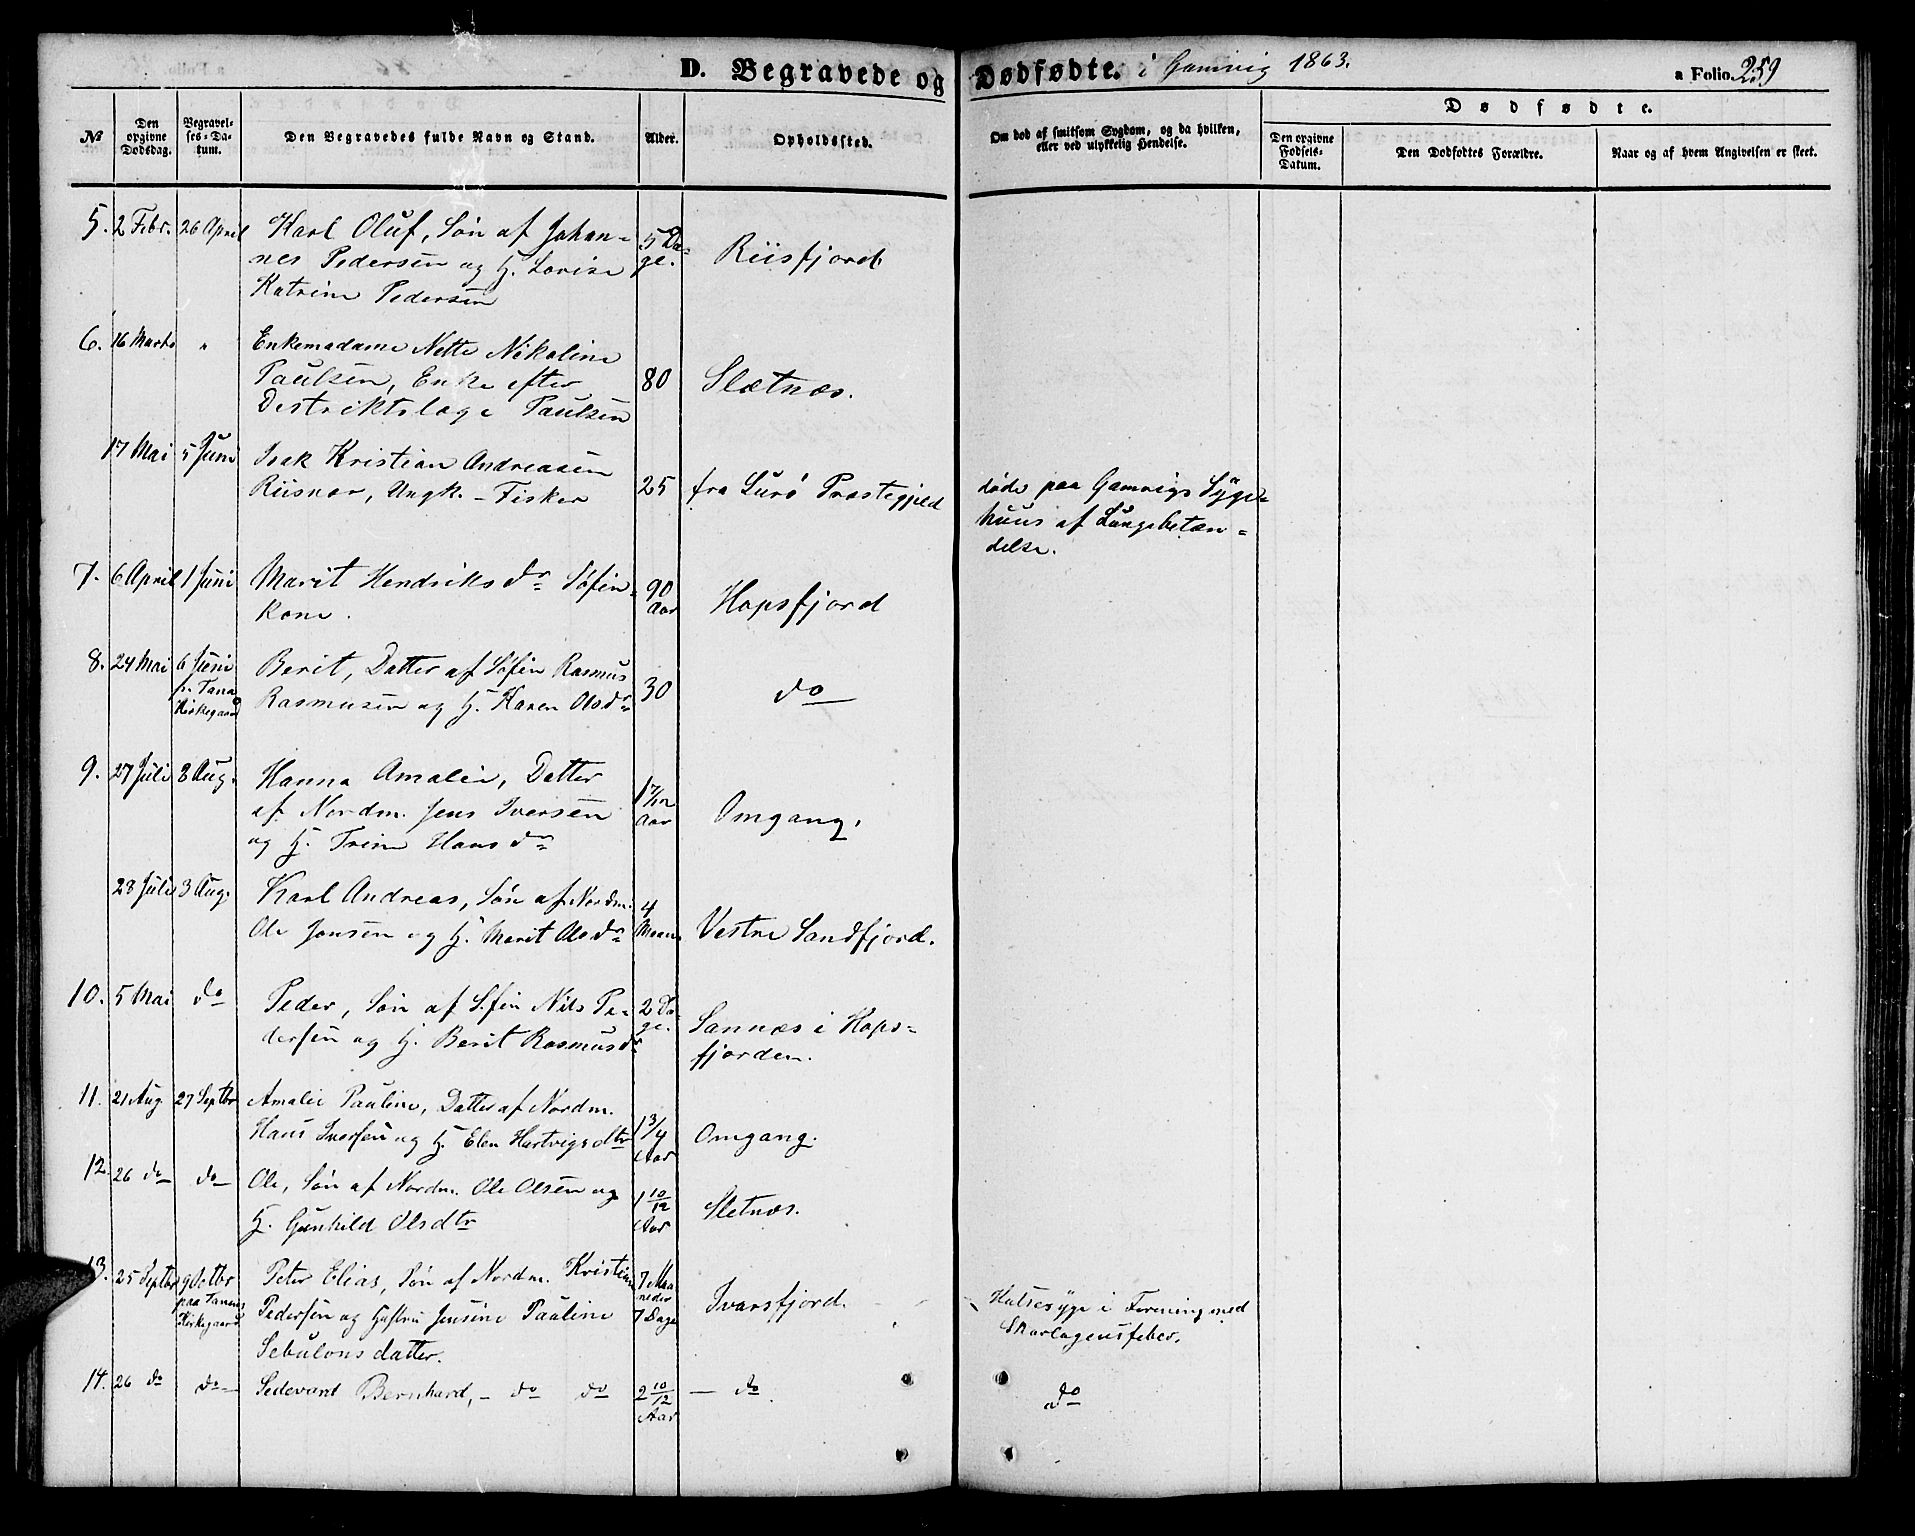 D. Begravede og Dødfødte. i Gamvig 1863. a Folio 259
Dødfødte.
No Den opgivne Dødsdag. Begravelses-Datum. Den Begravedes fulde Navn og Stand. Alder. Opholdssted. Om død af smitsom Sygdom, og da hvilken, eller ved ulykkelig Hendelse. Den opgivne Fødsels-Datum. Den Dødfødtes Forældre. Naar og af hvem Angivelsen er skeet.
5. 2 Febr. 26 April Karl Oluf, Søn af Johan- 5 Da-
nes Pedersen og H. Lovise ge. Riisfjord
Katrine Pedersen
6. 16 Marts " Enkemadame Nette Nikoline
Paulsen, Enke efter 80 Sletnæs.
Distriktslæge Paulsen
17 Mai 5 Juni Isak Kristian Andreasen
Riisnær, Ungk. - Fisker 25 fra Lurø Præstegjeld døde paa Gamvigs Syge-
huus af Lungebetæn-
delse.
7. 6 April 1 Juni Marit Hendriksdr Søfin- 90
kone. Aar Hopsfjord
8. 24 Mai 6 Juni Berit, Datter af Søfin Rasmus
p. Tana Rasmusen og H. Karen Olsdr 30 do
Kirkegaard
9. 27 Juli 3 Aug. Hanna Amalie, Datter
af Nordm. Jens Iversen 1 7/12 Aar Omgang.
og H. Trine Hansdr
28 Juli 3 Aug. Karl Andreas, Søn af Nordm. 4
Ole Jensen og H. Marit Olsdr Maan. Vestre Sandfjord.
10. 5 Mai do Peder, Søn af S.fin Nils Pe- 2 Da-
dersen og H. Berit Rasmusdr ge. Sannæs i Hops-
fjorden.
11. 21 Aug. 27 Septbr Amalie Pauline, Datter af Nordm.
Hans Iversen og H. Elen Hartvigsdtr 1 3/4 Aar Omgang.
12. 26 do do Ole, Søn af Nordm. Ole Olsen og 1 10/12
H. Gunhild Olsdtr Aar Sletnæs.
13. 25 Septbr 9 Octbr Peter Elias, Søn af Nordm. Kristian 7 Maa-
paa Tanens Pedersen og Hustru Jensine Pauline neder Ivarsfjord. Halsesyge i Forening med
Kirkegaard Sebulonsdatter. 7 Dage Skarlagensfeber.
14. 26 do do Sedevard Bernhard, - do do 2 10/12 - do do
Aar